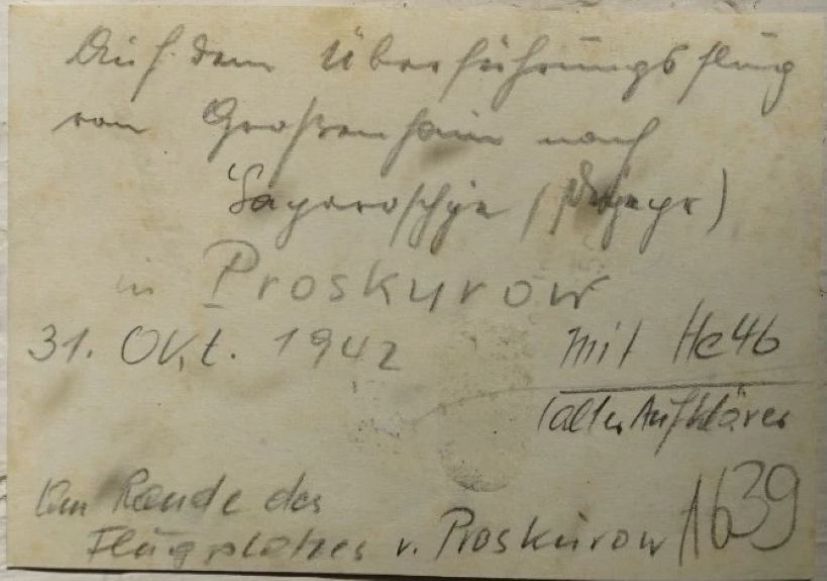 Auf dem Überführungsflug
von Großenhain nach
Saporoschje (Dnjepr)
in Proskurow
31. Okt. 1942 mit He46
(alter Aufklärer
Am Rande des
Flugplatzes v. Proskurow 1639